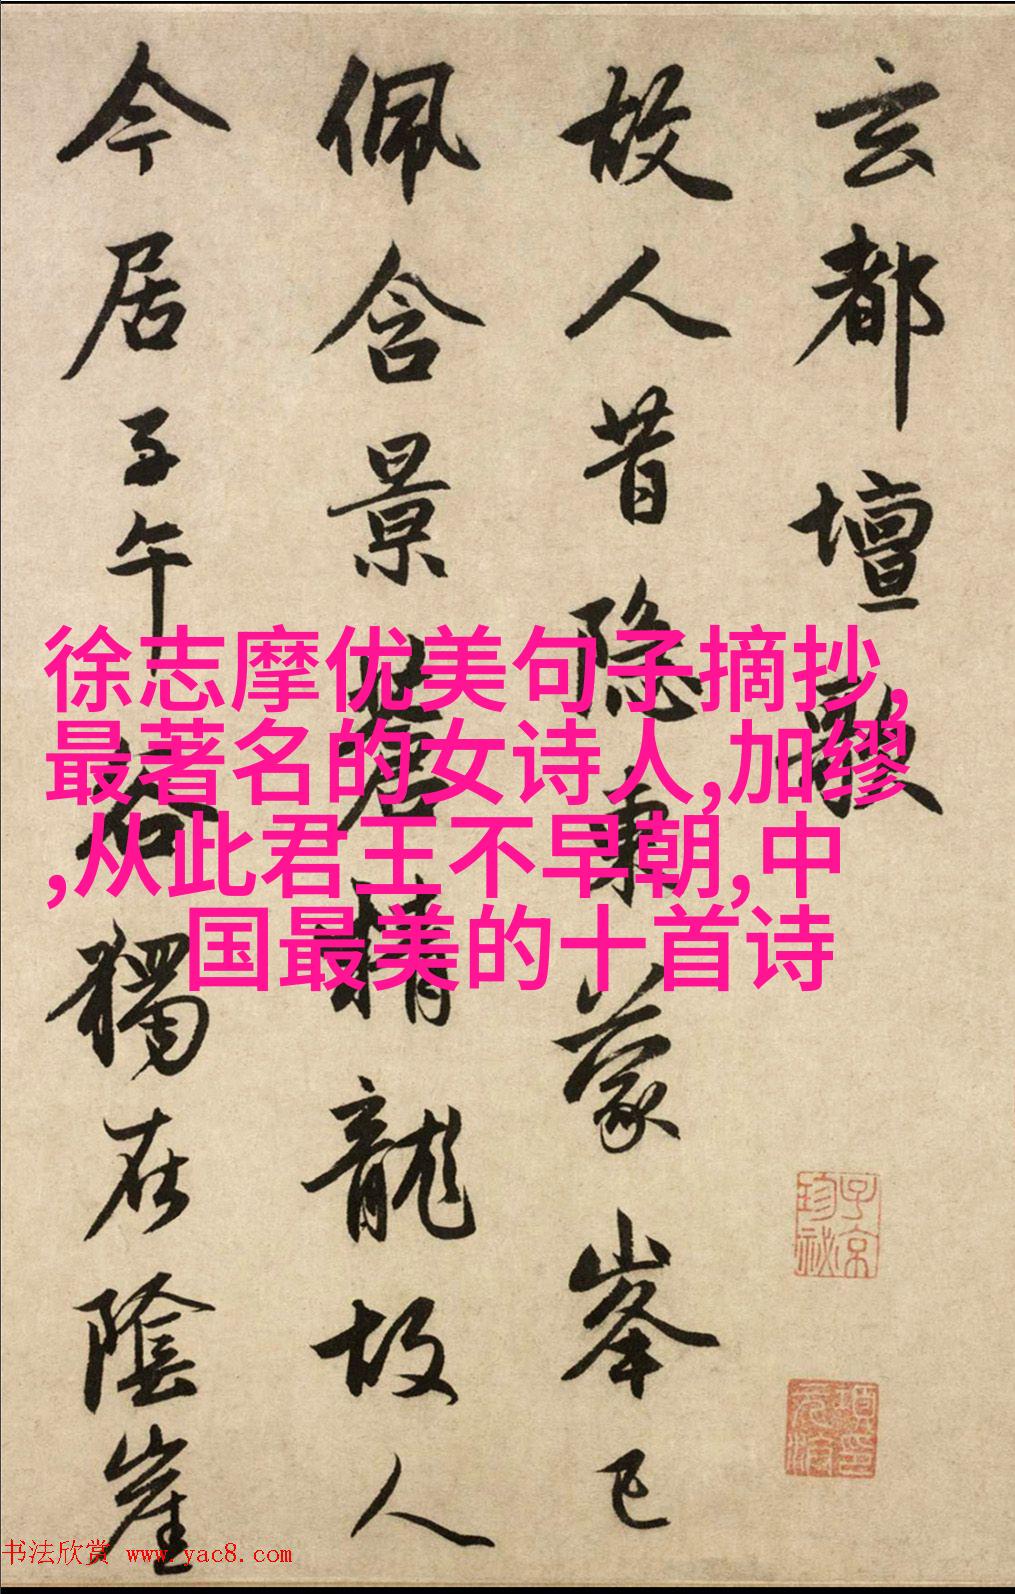 玄都壇歌
故人昔隐東蒙峯已
佩含景蒼精龍故人
今居子午谷獨在陰崖
徐志摩优美句子摘抄,
最著名的女诗人,加缪
,从此君王不早朝,中
国最美的十首诗
子京
珍祕
书法欣赏 www.yac8.com